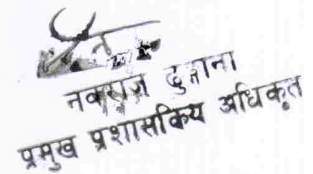 नवराज ढुंगाना
प्रमुख प्रशासकिय अधिकृत